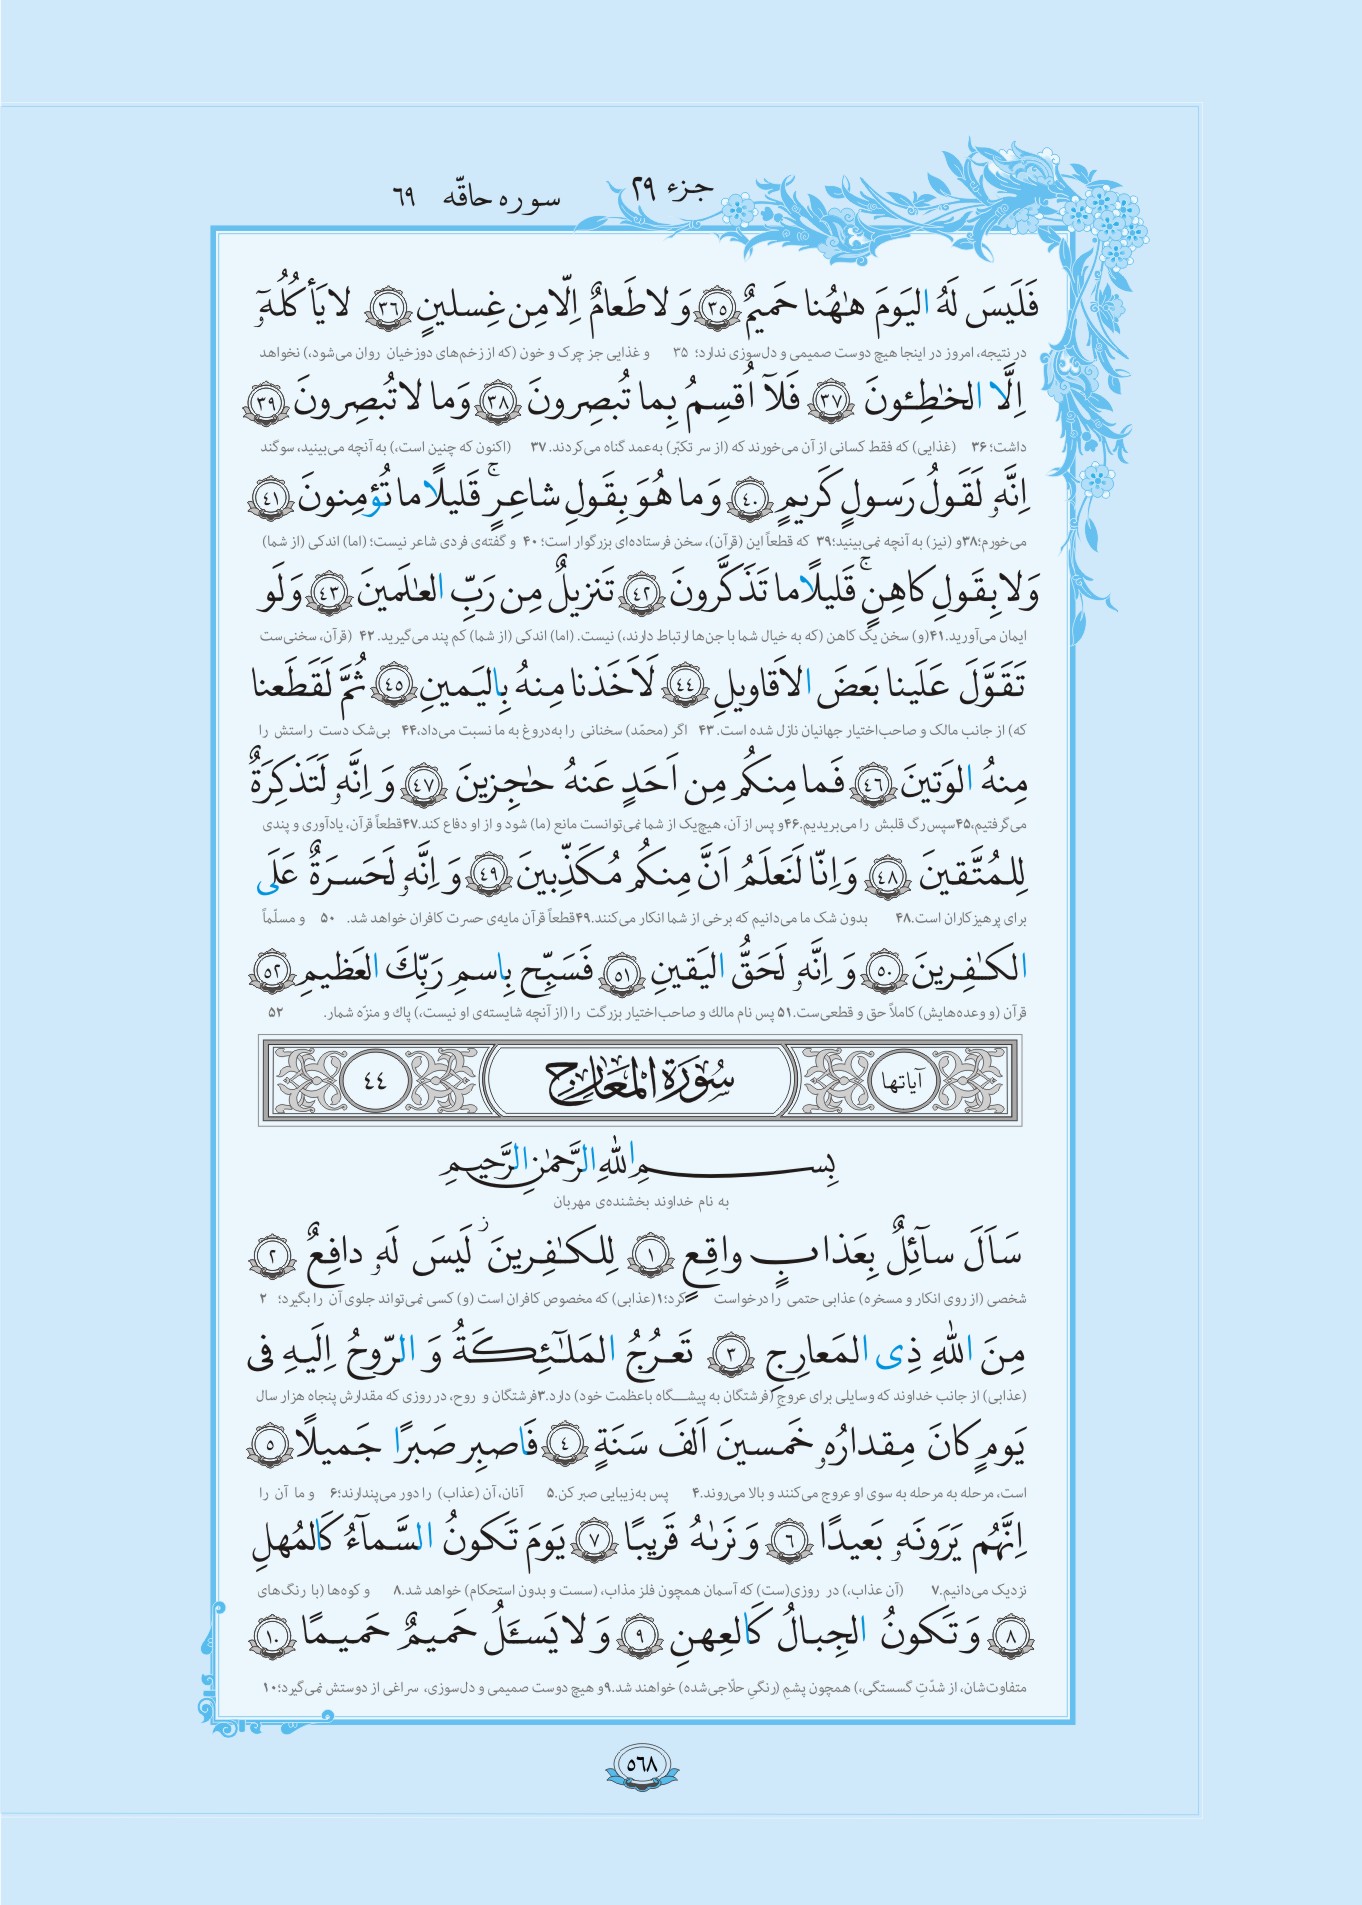 جزء ۲۹
سوره حاقّه ۶۹
فَلَيسَ لَهُ اليَومَ هٰهُنا حَميمٌ ﴿٣٥﴾ وَ لا طَعامٌ اِلّا مِن غِسلينٍ ﴿٣٦﴾ لا يَأكُلُهٓ
در نتیجه، امروز در اینجا هیچ دوست صمیمی و دل‌سوزی ندارد؛ ۳۵ و غذایی جز چرک و خون (که از زخم‌های دوزخیان روان می‌شود،) نخواهد
اِلَّا الخٰطِـئونَ ﴿٣٧﴾ فَلآ اُقسِمُ بِما تُبصِرونَ ﴿٣٨﴾ وَما لا تُبصِرونَ ﴿٣٩﴾
داشت؛ ۳۶ (غذایی) که فقط کسانی از آن می‌خورند که (از سر تکبّر) به‌عمد گناه می‌کردند. ۳۷ (اکنون که چنین است،) به آنچه می‌بینید، سوگند
اِنَّهٗ لَقَولُ رَسولٍ كَريمٍ ﴿٤٠﴾ وَما هُوَ بِقَولِ شاعِرٍۚ قَليلًا ما تُؤمِنونَ ﴿٤١﴾
می‌خورم؛۳۸و (نیز) به آنچه نمی‌بینید؛۳۹ که قطعاً این (قرآن)، سخن فرستاده‌ای بزرگوار است؛ ۴۰ و گفته‌ی فردی شاعر نیست؛ (اما) اندکی (از شما)
وَلا بِقَولِ كاهِنٍۚ قَليلًا ما تَذَكَّرونَ ﴿٤٢﴾ تَنزيلٌ مِن رَبِّ العٰلَمينَ ﴿٤٣﴾ وَلَو
ایمان می‌آورید.۴۱(و) سخن یک کاهن (که به خیال شما با جن‌ها ارتباط دارند،) نیست. (اما) اندکی (از شما) کم پند می‌گیرید. ۴۲ (قرآن، سخنی‌ست
تَقَوَّلَ عَلَينا بَعضَ الاَقاويلِ ﴿٤٤﴾ لَاَخَذنا مِنهُ بِاليَمينِ ﴿٤٥﴾ ثُمَّ لَقَطَعنا
که) از جانب مالک و صاحب‌اختیار جهانیان نازل شده است. ۴۳ اگر (محمّد) سخنانی را به‌دروغ به ما نسبت می‌داد،۴۴ بی‌شک دست راستش را
مِنهُ الوَتينَ ﴿٤٦﴾ فَما مِنكُم مِن اَحَدٍ عَنهُ حٰجِزينَ ﴿٤٧﴾ وَ اِنَّهٗ لَتَذكِرَةٌ
می‌گرفتیم،۴۵سپس رگ قلبش را می‌بریدیم.۴۶و پس از آن، هیچ‌یک از شما نمی‌توانست مانع (ما) شود و از او دفاع کند.۴۷قطعاً قرآن، یادآوری و پندی
لِلمُتَّقينَ ﴿٤٨﴾ وَ اِنّا لَنَعلَمُ اَنَّ مِنكُم مُكَذِّبينَ ﴿٤٩﴾ وَ اِنَّهٗ لَحَسرَةٌ عَلَى
برای پرهیزکاران است.۴۸ بدون شک ما می‌دانیم که برخی از شما انکار می‌کنند.۴۹قطعاً قرآن مایه‌ی حسرت کافران خواهد شد. ۵۰ و مسلّماً
الكٰفِرينَ ﴿٥٠﴾ وَ اِنَّهٗ لَحَقُّ اليَقينِ ﴿٥١﴾ فَسَبِّح بِاسمِ رَبِّكَ العَظيمِ ﴿٥٢﴾
قرآن (و وعده‌هایش) کاملاً حق و قطعی‌ست.۵۱ پس نام مالك و صاحب‌اختیار بزرگت را (از آنچه شایسته‌ی او نیست،) پاك و منزّه شمار. ۵۲
آیاتها سُورَةُ المَعَارِجِ ٤٤
بِسمِ اللهِ الرَّحمٰنِ الرَّحيمِ
به نام خداوند بخشنده‌ی مهربان
سَاَلَ سآئِلٌ بِعَذابٍ واقِعٍ ﴿١﴾ لِلكٰفِرينَ ز لَيسَ لَهٗ دافِعٌ ﴿٢﴾
شخصی (از روی انکار و مسخره) عذابی حتمی را درخواست کرد؛۱(عذابی) که مخصوص کافران است (و) کسی نمی‌تواند جلوی آن را بگیرد؛ ۲
مِنَ اللهِ ذِى المَعارِجِ ﴿٣﴾ تَعرُجُ المَلٰٓئِكَةُ وَ الرّوحُ اِلَيهِ فى
(عذابی) از جانب خداوند که وسایلی برای عروجِ (فرشتگان به پیشگاه باعظمت خود) دارد.۳فرشتگان و روح، در روزی که مقدارش پنجاه هزار سال
يَومٍ كانَ مِقدارُهٗ خَمسينَ اَلفَ سَنَةٍ ﴿٤﴾ فَاصبِر صَبرًا جَميلًا ﴿٥﴾
است، مرحله به مرحله به سوی او عروج می‌کنند و بالا می‌روند.۴ پس به‌زیبایی صبر کن.۵ آنان، آن (عذاب) را دور می‌پندارند؛۶ و ما آن را
اِنَّهُم يَرَونَهٗ بَعيدًا ﴿٦﴾ وَ نَرٰىهُ قَريبًا ﴿٧﴾ يَومَ تَكونُ السَّمآءُ كَالمُهلِ
نزدیک می‌دانیم.۷ (آن عذاب،) در روزی(ست) که آسمان همچون فلز مذاب، (سست و بدون استحکام) خواهد شد.۸ و کوه‌ها (با رنگ‌های
﴿٨﴾ وَ تَكونُ الجِبالُ كَالعِهنِ ﴿٩﴾ وَ لا يَسـَٔلُ حَميمٌ حَميمًا ﴿١٠﴾
متفاوت‌شان، از شدّتِ گسستگی،) همچون پشمِ (رنگیِ حلّاجی‌شده) خواهند شد.۹و هیچ دوست صمیمی و دل‌سوزی، سراغی از دوستش نمی‌گیرد؛۱۰
٥٦٨